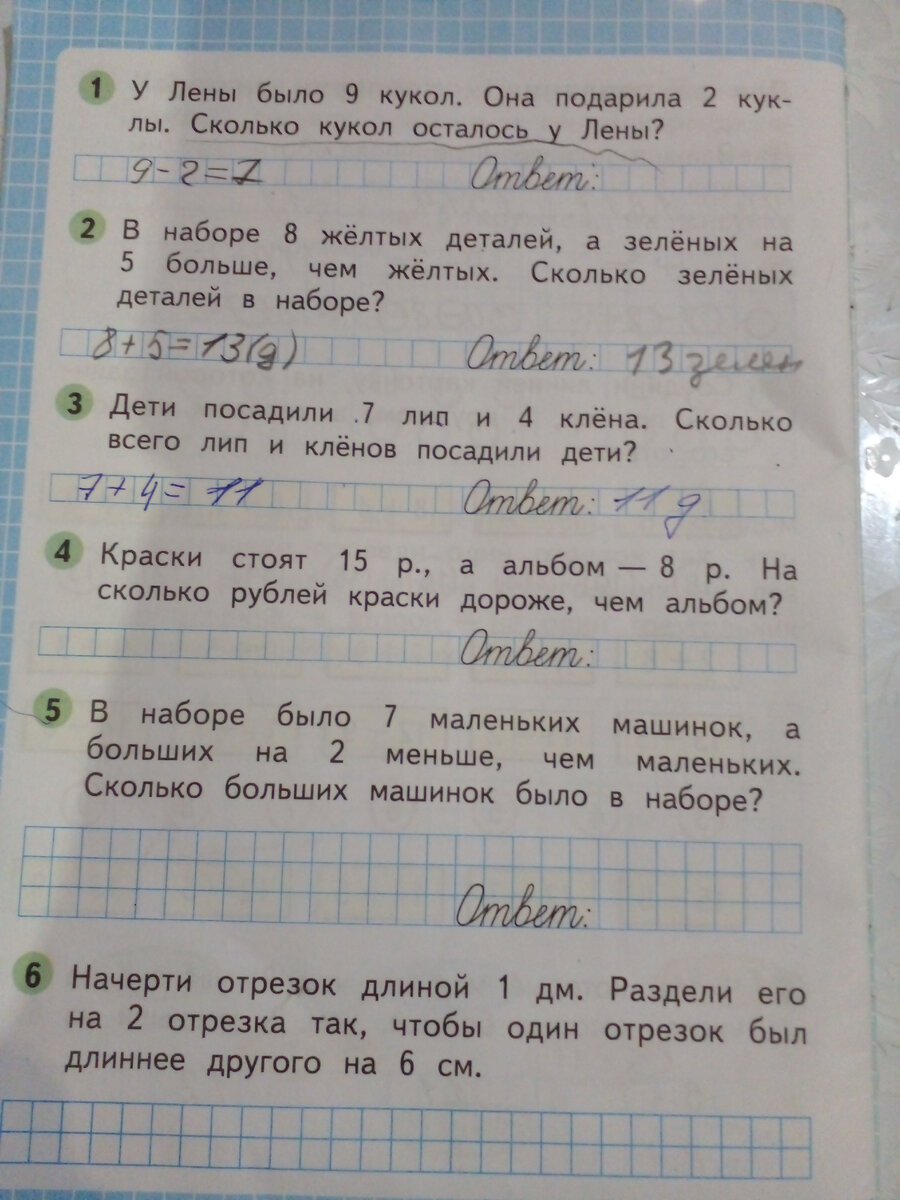 1 У Лены было 9 кукол. Она подарила 2 кук-
лы. Сколько кукол осталось у Лены?
9-2=7 Ответ:
2 В наборе 8 жёлтых деталей, а зелёных на
5 больше, чем жёлтых. Сколько зелёных
деталей в наборе?
8+5=13(д) Ответ: 13 зелен
3 Дети посадили 7 лип и 4 клёна. Сколько
всего лип и клёнов посадили дети?
7+4=11 Ответ: 11 д
4 Краски стоят 15 р., а альбом — 8 р. На
сколько рублей краски дороже, чем альбом?
Ответ:
5 В наборе было 7 маленьких машинок, а
больших на 2 меньше, чем маленьких.
Сколько больших машинок было в наборе?
Ответ:
6 Начерти отрезок длиной 1 дм. Раздели его
на 2 отрезка так, чтобы один отрезок был
длиннее другого на 6 см.